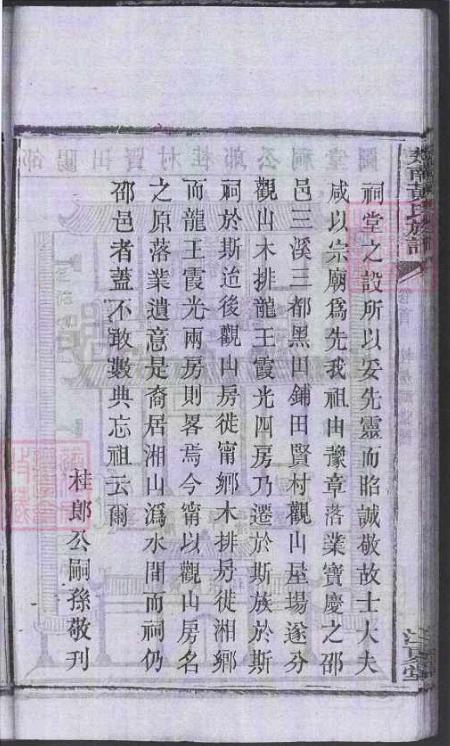 祠堂之設所以妥先靈而昭誠敬故士大夫
咸以宗廟爲先我祖由豫章落業寶慶之邵
邑三溪三都黑田鋪田賢村觀山屋場遂分
觀山木排龍王霞光四房乃遷於斯族於斯
祠於斯迨後觀山房徙甯鄉木排房徙湘鄉
而龍王霞光兩房則畧焉今甯以觀山房名
之原落業遺意是裔居湘山潙水間而祠仍
邵邑者葢不敢數典忘祖云爾
桂郎公嗣孫敬刊
黃氏族譜
江夏堂